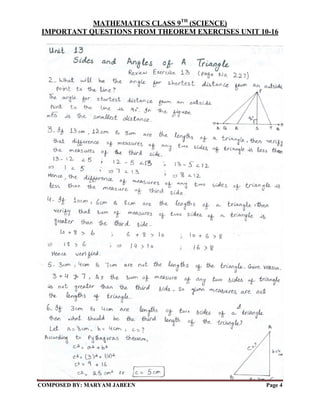 MATHEMATICS CLASS 9TH (SCIENCE)
IMPORTANT QUESTIONS FROM THEOREM EXERCISES UNIT 10-16
Unit 13
Sides and Angles of A Triangle
Review Exercise 13 (page No. 227)
2. What will be the angle for shortest distance from an outside
point to the line?
The angle for shortest distance from an outside
point to the line is 90°. In the figure
is the smallest distance.
3. If 13cm, 12cm & 5cm are the lengths of a triangle, then verify
that difference of measures of any two sides of triangle is less than
the measures of the third side.
13-12 < 5 ; 12-5 < 13 ; 13-5 < 12
⇒ 1 < 5 ; ⇒ 7 < 13 ; ⇒ 8 < 12
Hence, the difference of measures of any two sides of triangle is
less than the measure of third side.
4. If 10cm, 6cm & 8cm are the lengths of a triangle, then
verify that sum of measures of two sides of a triangle is
greater than the third side.
10+8 > 6 ; 6+8 > 10 ; 10+6 > 8
⇒ 18 > 6 ; ⇒ 14 > 10 ; 16 > 8
Hence verified.
5. 3cm, 4cm & 7cm are not the lengths of the triangle. Give reason.
3+4 ≯ 7, As the sum of measure of any two sides of triangle
is not greater than the third side, so given measures are not
the lengths of triangle.
6. If 3cm & 4cm are lengths of two sides of a triangle
then what should be the third length of the triangle?
Let a=3cm, b=4cm, c=?
According to Pythagoras theorem,
c² = a²+b²
c² = (3)²+(4)²
c² = 9+16
c² = 25 cm² or c = 5cm
COMPOSED BY: MARYAM JABEEN Page 4